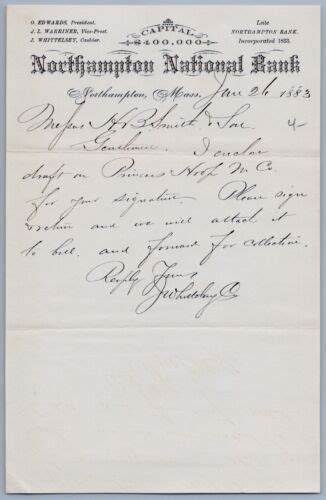 O. EDWARDS, President.
J. L. WARRINER, Vice-Prest.
J. WHITTELSEY, Cashier.
CAPITAL
$400,000
Late
NORTHAMPTON BANK.
Incorporated 1833.
Northampton National Bank
Northampton, Mass. 26 1883
Messrs H B Smith & Son
Gentlemen I enclose
draft on Princess Hoop M Co.
for your signature. Please sign
& return and we will attach it
to bill and forward for collection.
Resply Yours
J Whittelsey C